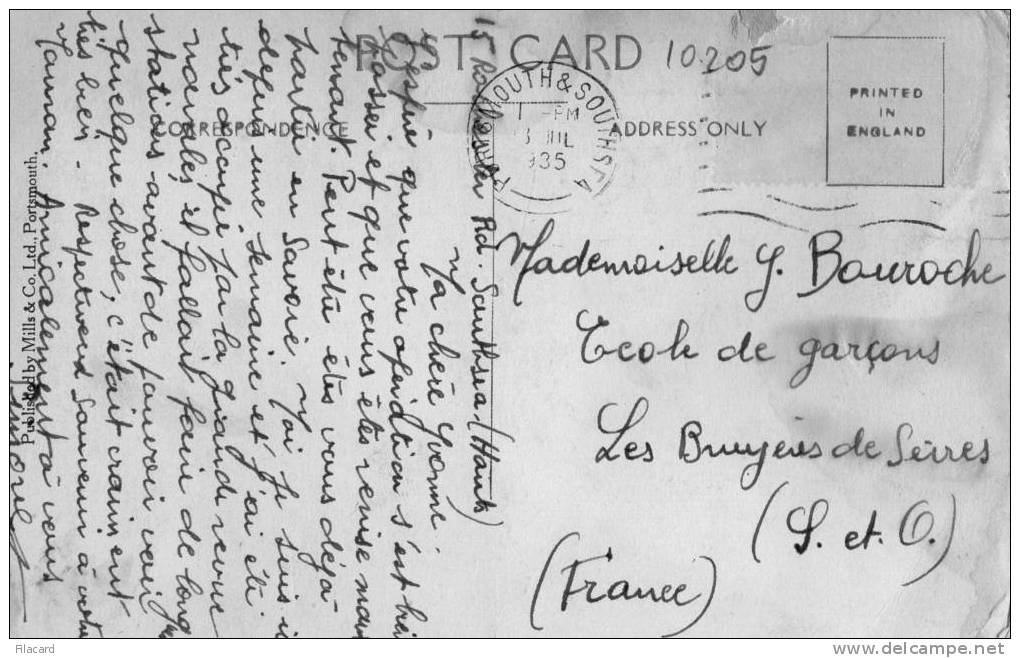 POST CARD
10.205
CORRESPONDENCE
ADDRESS ONLY
PRINTED
IN
ENGLAND
PORTSMOUTH & SOUTHSEA
1 - PM
JUL
1935
Published by Mills & Co. Ltd., Portsmouth.
15 Rd. Southsea (Hants)
Ma chère Yvonne
J'espère que votre opération s'est très
passée et que vous êtes remise main
tenant. Peut être êtes vous déjà
partie en Savoie. Moi je suis ici
depuis une semaine et j'ai été
très occupée par la grande revue
navale, il fallait faire de longues
stations avant de pouvoir voir
quelque chose, c'était vraiment
très bien. Respectueux Souvenir à votre
Maman. Amicalement à vous
Mademoiselle Y. Bouroche
Ecole de garçons
Les Bruyères de Sèvres
(S. et. O.)
(France)
filacard
delcampe.net